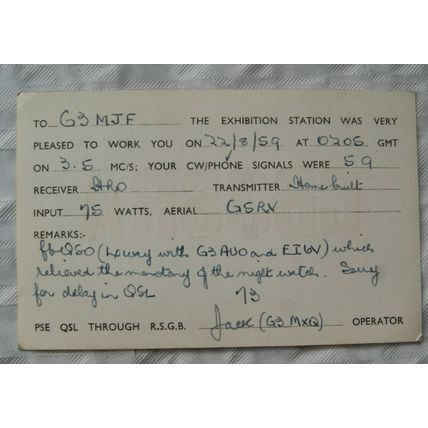 TO G3MJF THE EXHIBITION STATION WAS VERY
PLEASED TO WORK YOU ON 22/8/59 AT 0205 GMT
ON 3.5 MC/S: YOUR CW/PHONE SIGNALS WERE 59
RECEIVER HRO TRANSMITTER Homebuilt
INPUT 75 WATTS, AERIAL G5RV
REMARKS:-
fb QSO (4 way with G3AUO and EI6V) which
relieved the monotony of the night watch. Sorry
for delay in QSL 73
PSE QSL THROUGH R.S.G.B. Jack (G3MXQ) OPERATOR